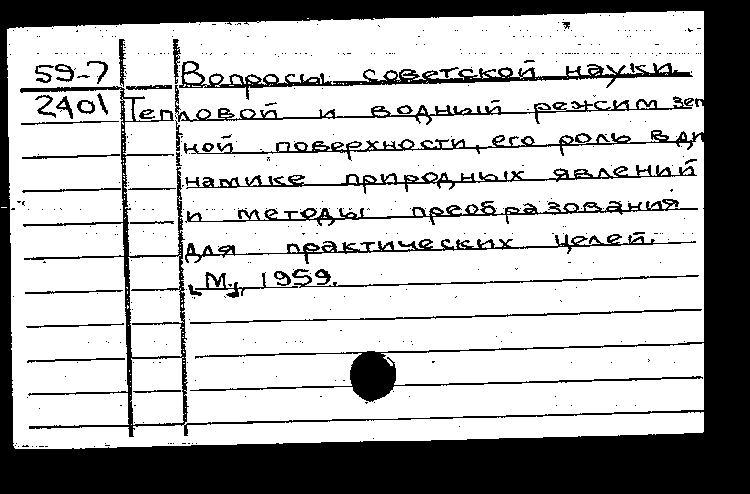 59-7 Вопросы советской науки.
2401 Тепловой и водный режим зем
ной поверхности, его роль в ди
намике природных явлений
и методы преобразования
для практических целей.
М., 1959.